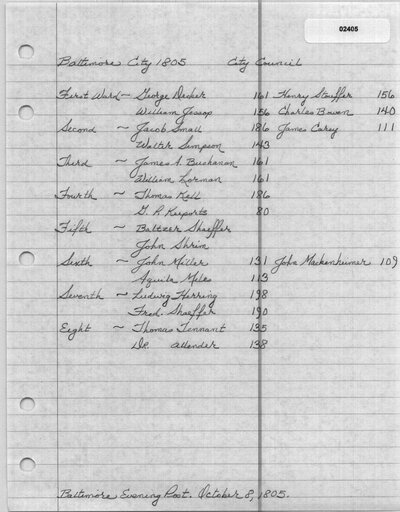 02405
Baltimore City 1805 City Council
First Ward ~ George Decker 161 Henry Stouffer 156
William Jessop 156 Charles Bowen 140
Second ~ Jacob Small 186 James Carey 111
Walter Simpson 143
Third ~ James A. Buchanan 161
William Lorman 161
Fourth ~ Thomas Kell 186
G. R. Keeports 80
Fifth ~ Baltzer Shaeffer
John Shrim
Sixth ~ John Miller 131 John Mackenheimer 109
Aquila Miles 113
Seventh ~ Ludwig Herring 198
Fred. Shaeffer 190
Eight ~ Thomas Tennant 135
Dr. Allender 138
Baltimore Evening Post. October 8, 1805.